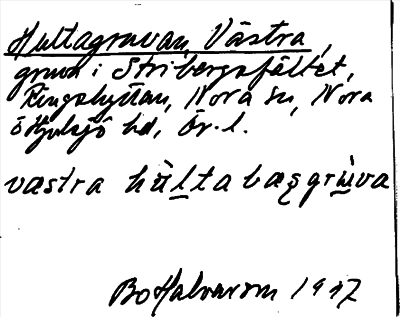 Hultagruvan, Västra,
gruva i Stribergsfältet,
Ringshyttan, Nora sn, Nora
o Hjulsjö hd, Ör. l.
västra hùlta bæṣgrùva
Bo Halvarson 1917